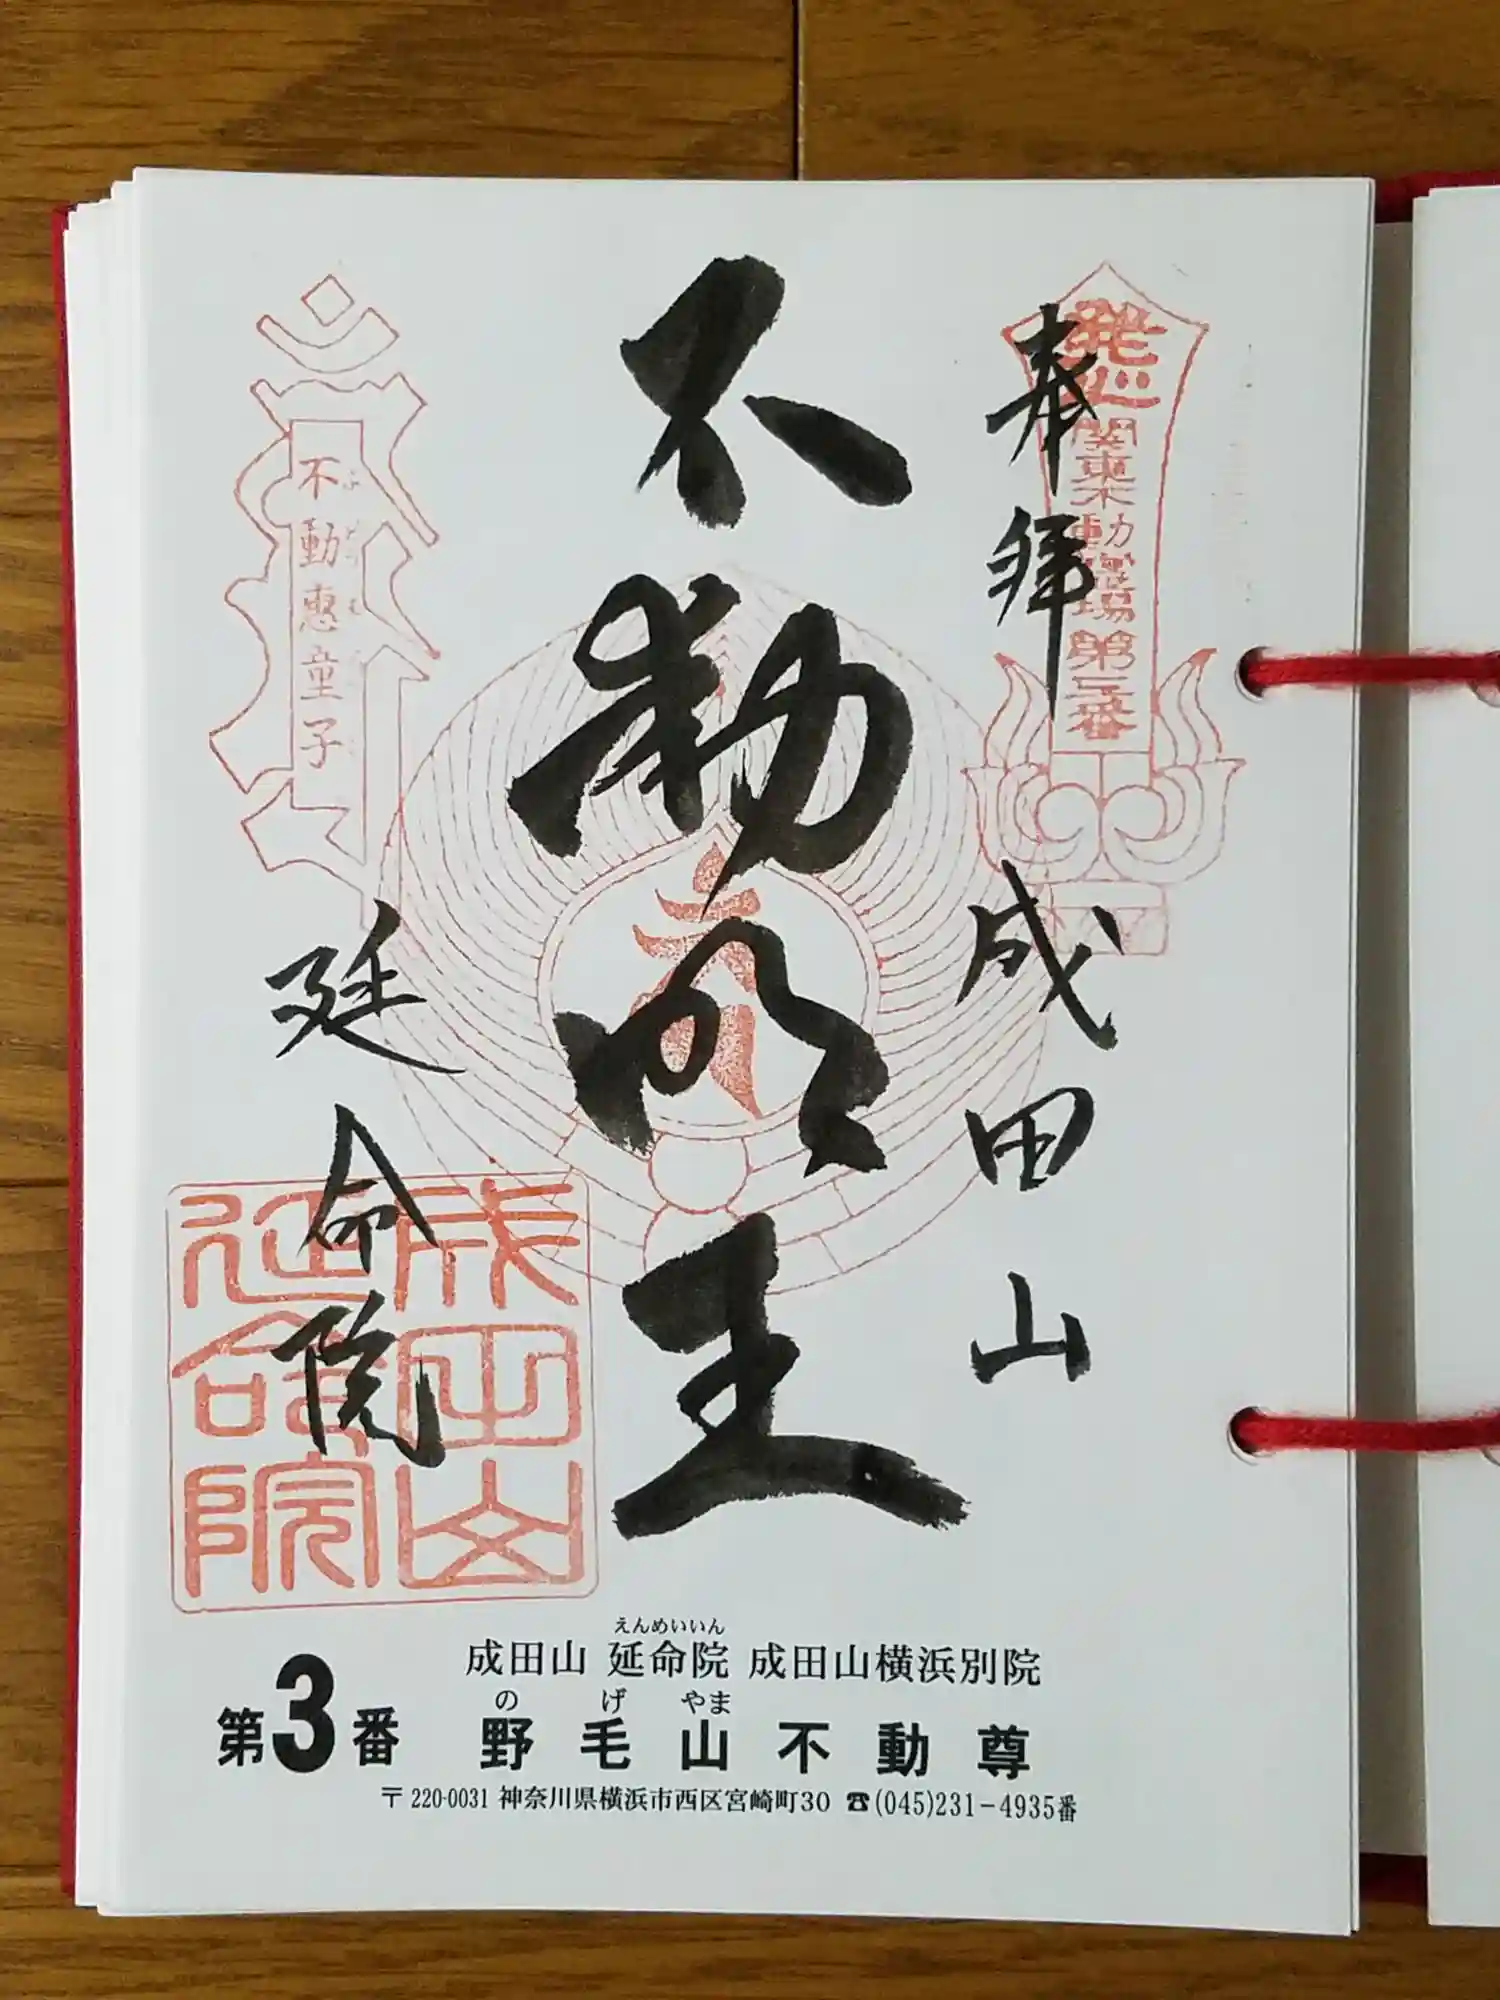 奉拝
成田山
不動明王
延命院
発心
関東不動霊場第三番
不動恵童子
成田山
延命院
えんめいいん
成田山 延命院 成田山横浜別院
の げ やま
第3番 野毛山不動尊
〒220-0031 神奈川県横浜市西区宮崎町30 ☎(045)231-4935番